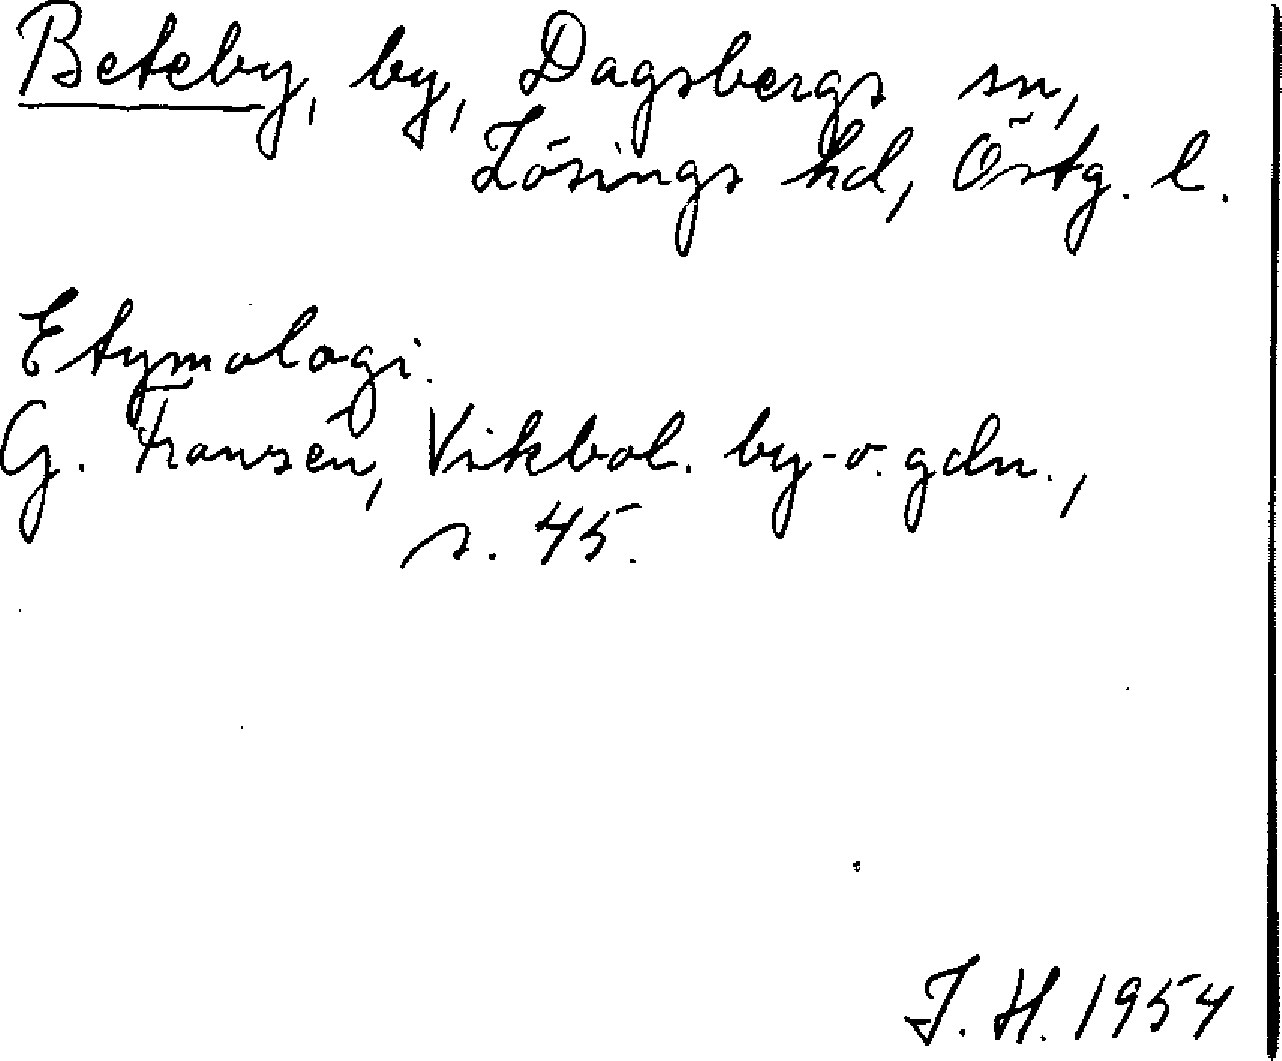 Beteby, by, Dagsbergs sn,
Lösings hd, Östg. l.
Etymologi.
G. Fransén, Vikbol. by- o. gdn.,
s. 45.
J. H. 1954